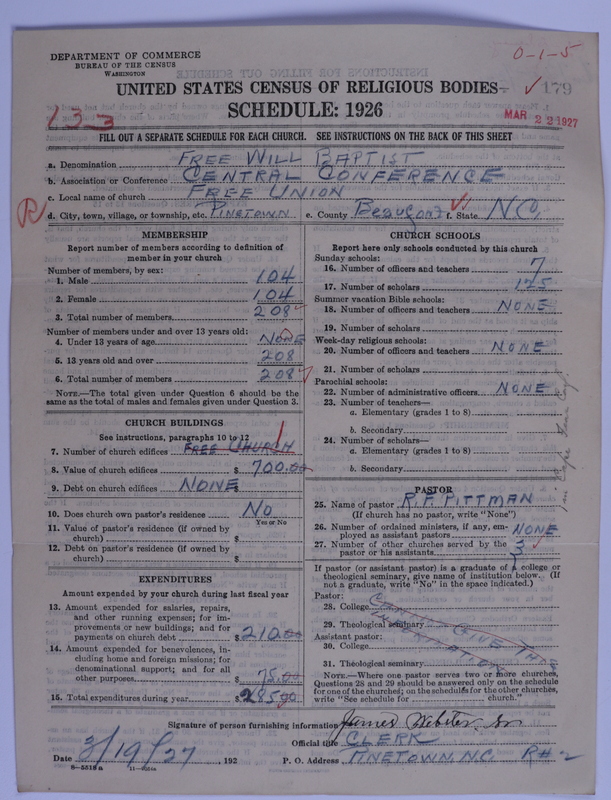 0-1-5
DEPARTMENT OF COMMERCE
BUREAU OF THE CENSUS
WASHINGTON
UNITED STATES CENSUS OF RELIGIOUS BODIES
179
SCHEDULE: 1926
MAR 22 1927
133
FILL OUT A SEPARATE SCHEDULE FOR EACH CHURCH. SEE INSTRUCTIONS ON THE BACK OF THIS SHEET
a. Denomination FREE WILL BAPTIST
b. Association or Conference CENTRAL CONFERENCE
c. Local name of church FREE UNION
d. City, town, village, or township, etc. PINETOWN e. County Beaufort f. State N.C.
MEMBERSHIP
Report number of members according to definition of
member in your church
Number of members, by sex:
1. Male 104
2. Female 104
3. Total number of members 208
Number of members under and over 13 years old:
4. Under 13 years of age NONE
5. 13 years old and over 208
6. Total number of members 208
NOTE.—The total given under Question 6 should be
same as the total of males and females given under Question 3.
CHURCH BUILDINGS
See instructions, paragraphs 10 to 12
7. Number of church edifices FREE CHURCH 1
8. Value of church edifices $ 700.00
9. Debt on church edifices NONE
10. Does church own pastor's residence No
Yes or No
11. Value of pastor's residence (if owned by
church) $
12. Debt on pastor's residence (if owned by
church) $
EXPENDITURES
Amount expended by your church during last fiscal year
13. Amount expended for salaries, repairs,
and other running expenses; for im-
provements or new buildings; and for
payments on church debt $ 210.00
14. Amount expended for benevolences, in-
cluding home and foreign missions; for
denominational support; and for all
other purposes $ 75.00
15. Total expenditures during year $ 285.00
CHURCH SCHOOLS
Report here only schools conducted by this church
Sunday schools:
16. Number of officers and teachers 7
17. Number of scholars 125
Summer vacation Bible schools:
18. Number of officers and teachers NONE
19. Number of scholars
Week-day religious schools:
20. Number of officers and teachers NONE
21. Number of scholars
Parochial schools:
22. Number of administrative officers NONE
23. Number of teachers—
a. Elementary (grades 1 to 8)
b. Secondary
24. Number of scholars—
a. Elementary (grades 1 to 8)
b. Secondary
PASTOR
25. Name of pastor R.F. PITTMAN
(If church has no pastor, write "None")
26. Number of ordained ministers, if any, em-
ployed as assistant pastors NONE
27. Number of other churches served by the
pastor or his assistants 3
If pastor (or assistant pastor) is a graduate of a college or
theological seminary, give name of institution below. (If
not a graduate, write "No" in the space indicated.)
Pastor:
28. College
29. Theological seminary
Assistant pastor:
30. College
31. Theological seminary
GIVE THIS
INFORMATION
NOTE.—Where one pastor serves two or more churches,
Questions 28 and 29 should be answered only on the schedule
for one of the churches; on the schedules for the other churches,
write "See schedule for church."
Signature of person furnishing information James Webster, Sr
Official title CLERK
Date 3/19/27, 192 P. O. Address PINETOWN, N.C. R#2
8—5518a